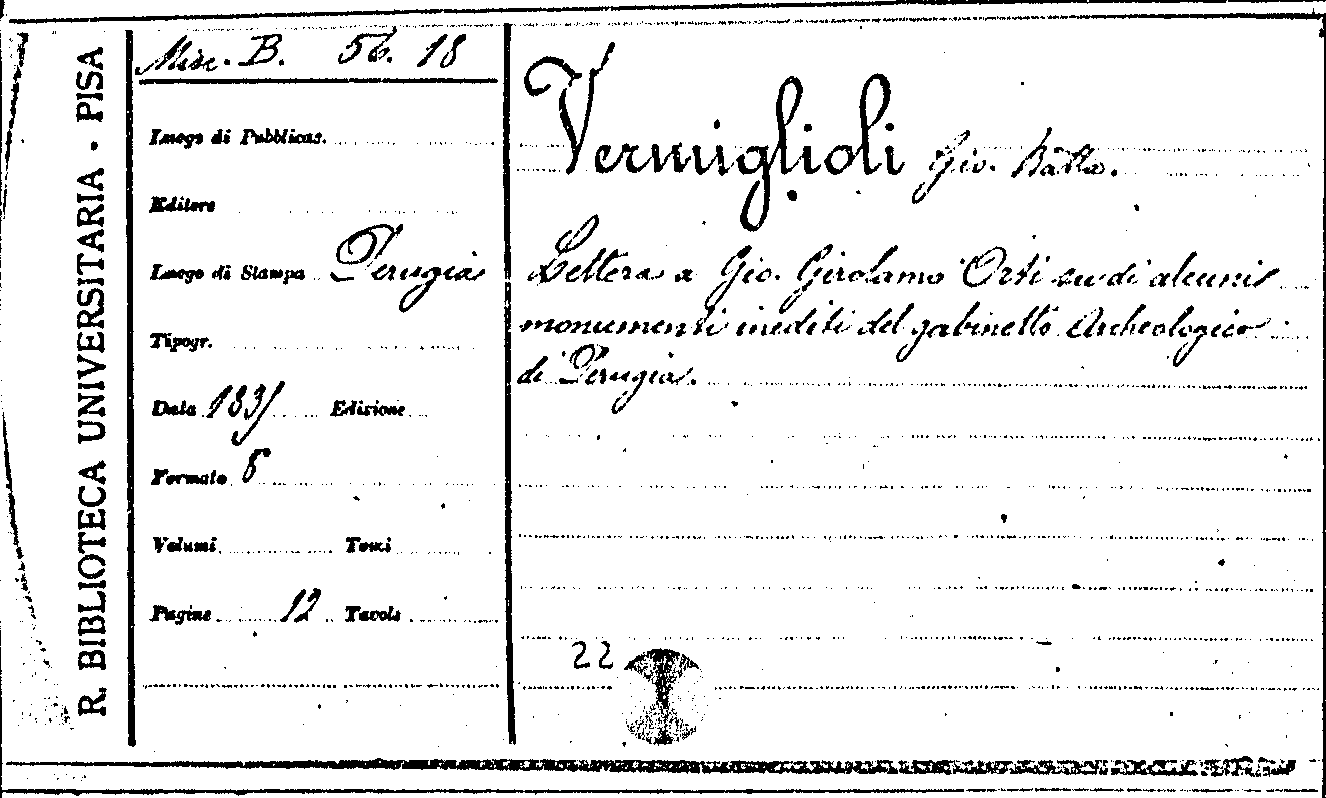 R. BIBLIOTECA UNIVERSITARIA - PISA
Misc. B. 56. 18
Luogo di Pubblicaz.
Editore
Luogo di Stampa Perugia
Tipogr.
Data 1831 Edizione
Formato 8
Volumi Tomi
Pagine 12 Tavole
Vermiglioli Gio. Batta.
Lettera a Gio. Girolamo Orti su di alcuni
monumenti inediti del gabinetto Archeologico
di Perugia.
22